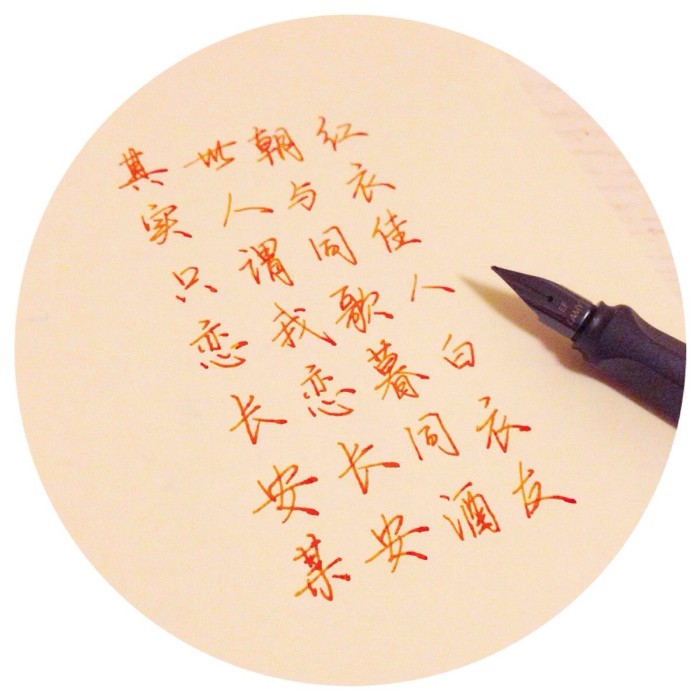 红衣佳人白衣友
朝与同歌暮同酒
世人谓我恋长安
其实只恋长安某
LAMY